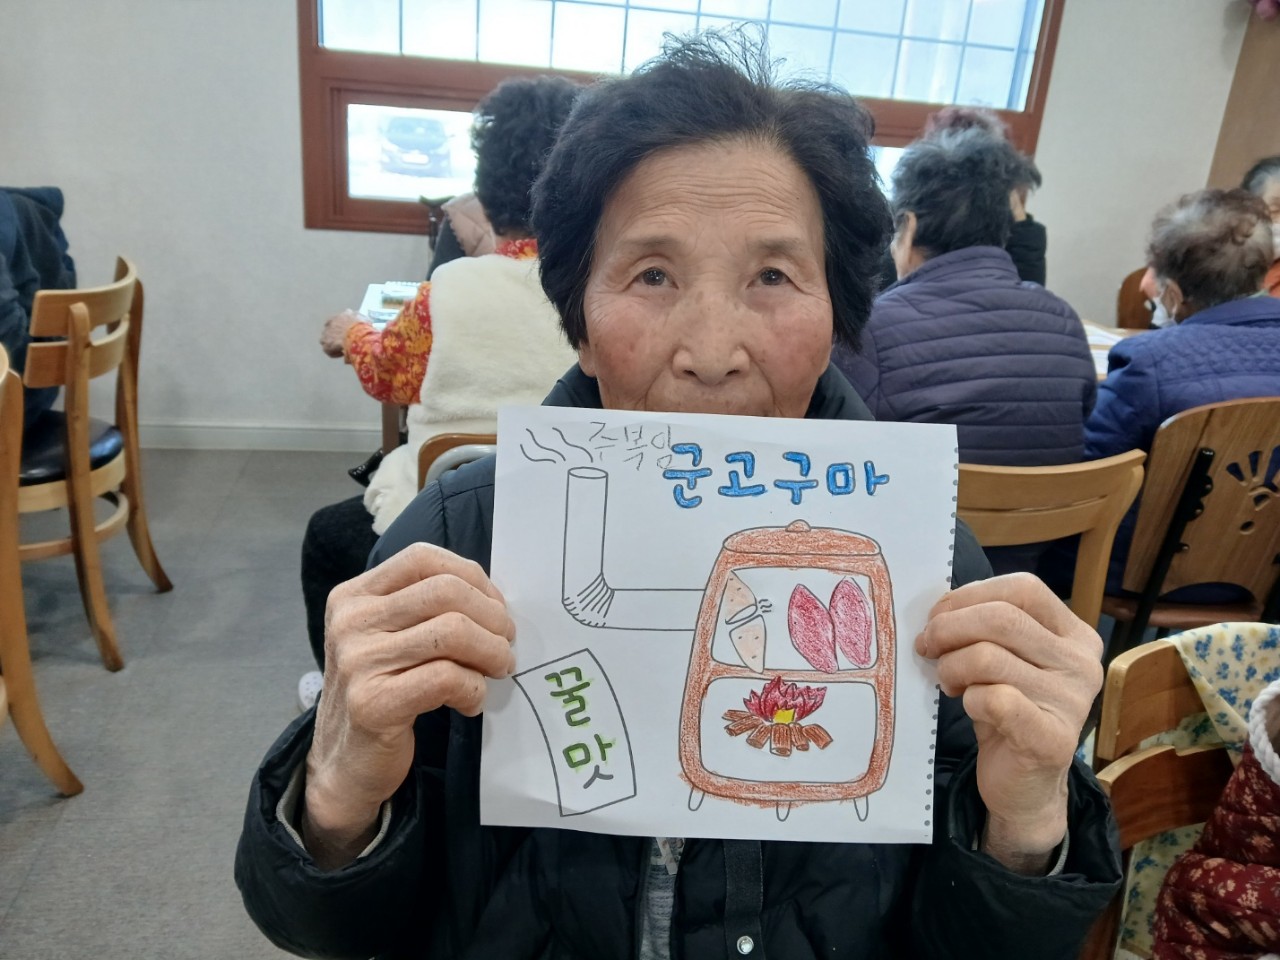 주복임
군고구마
꿀맛